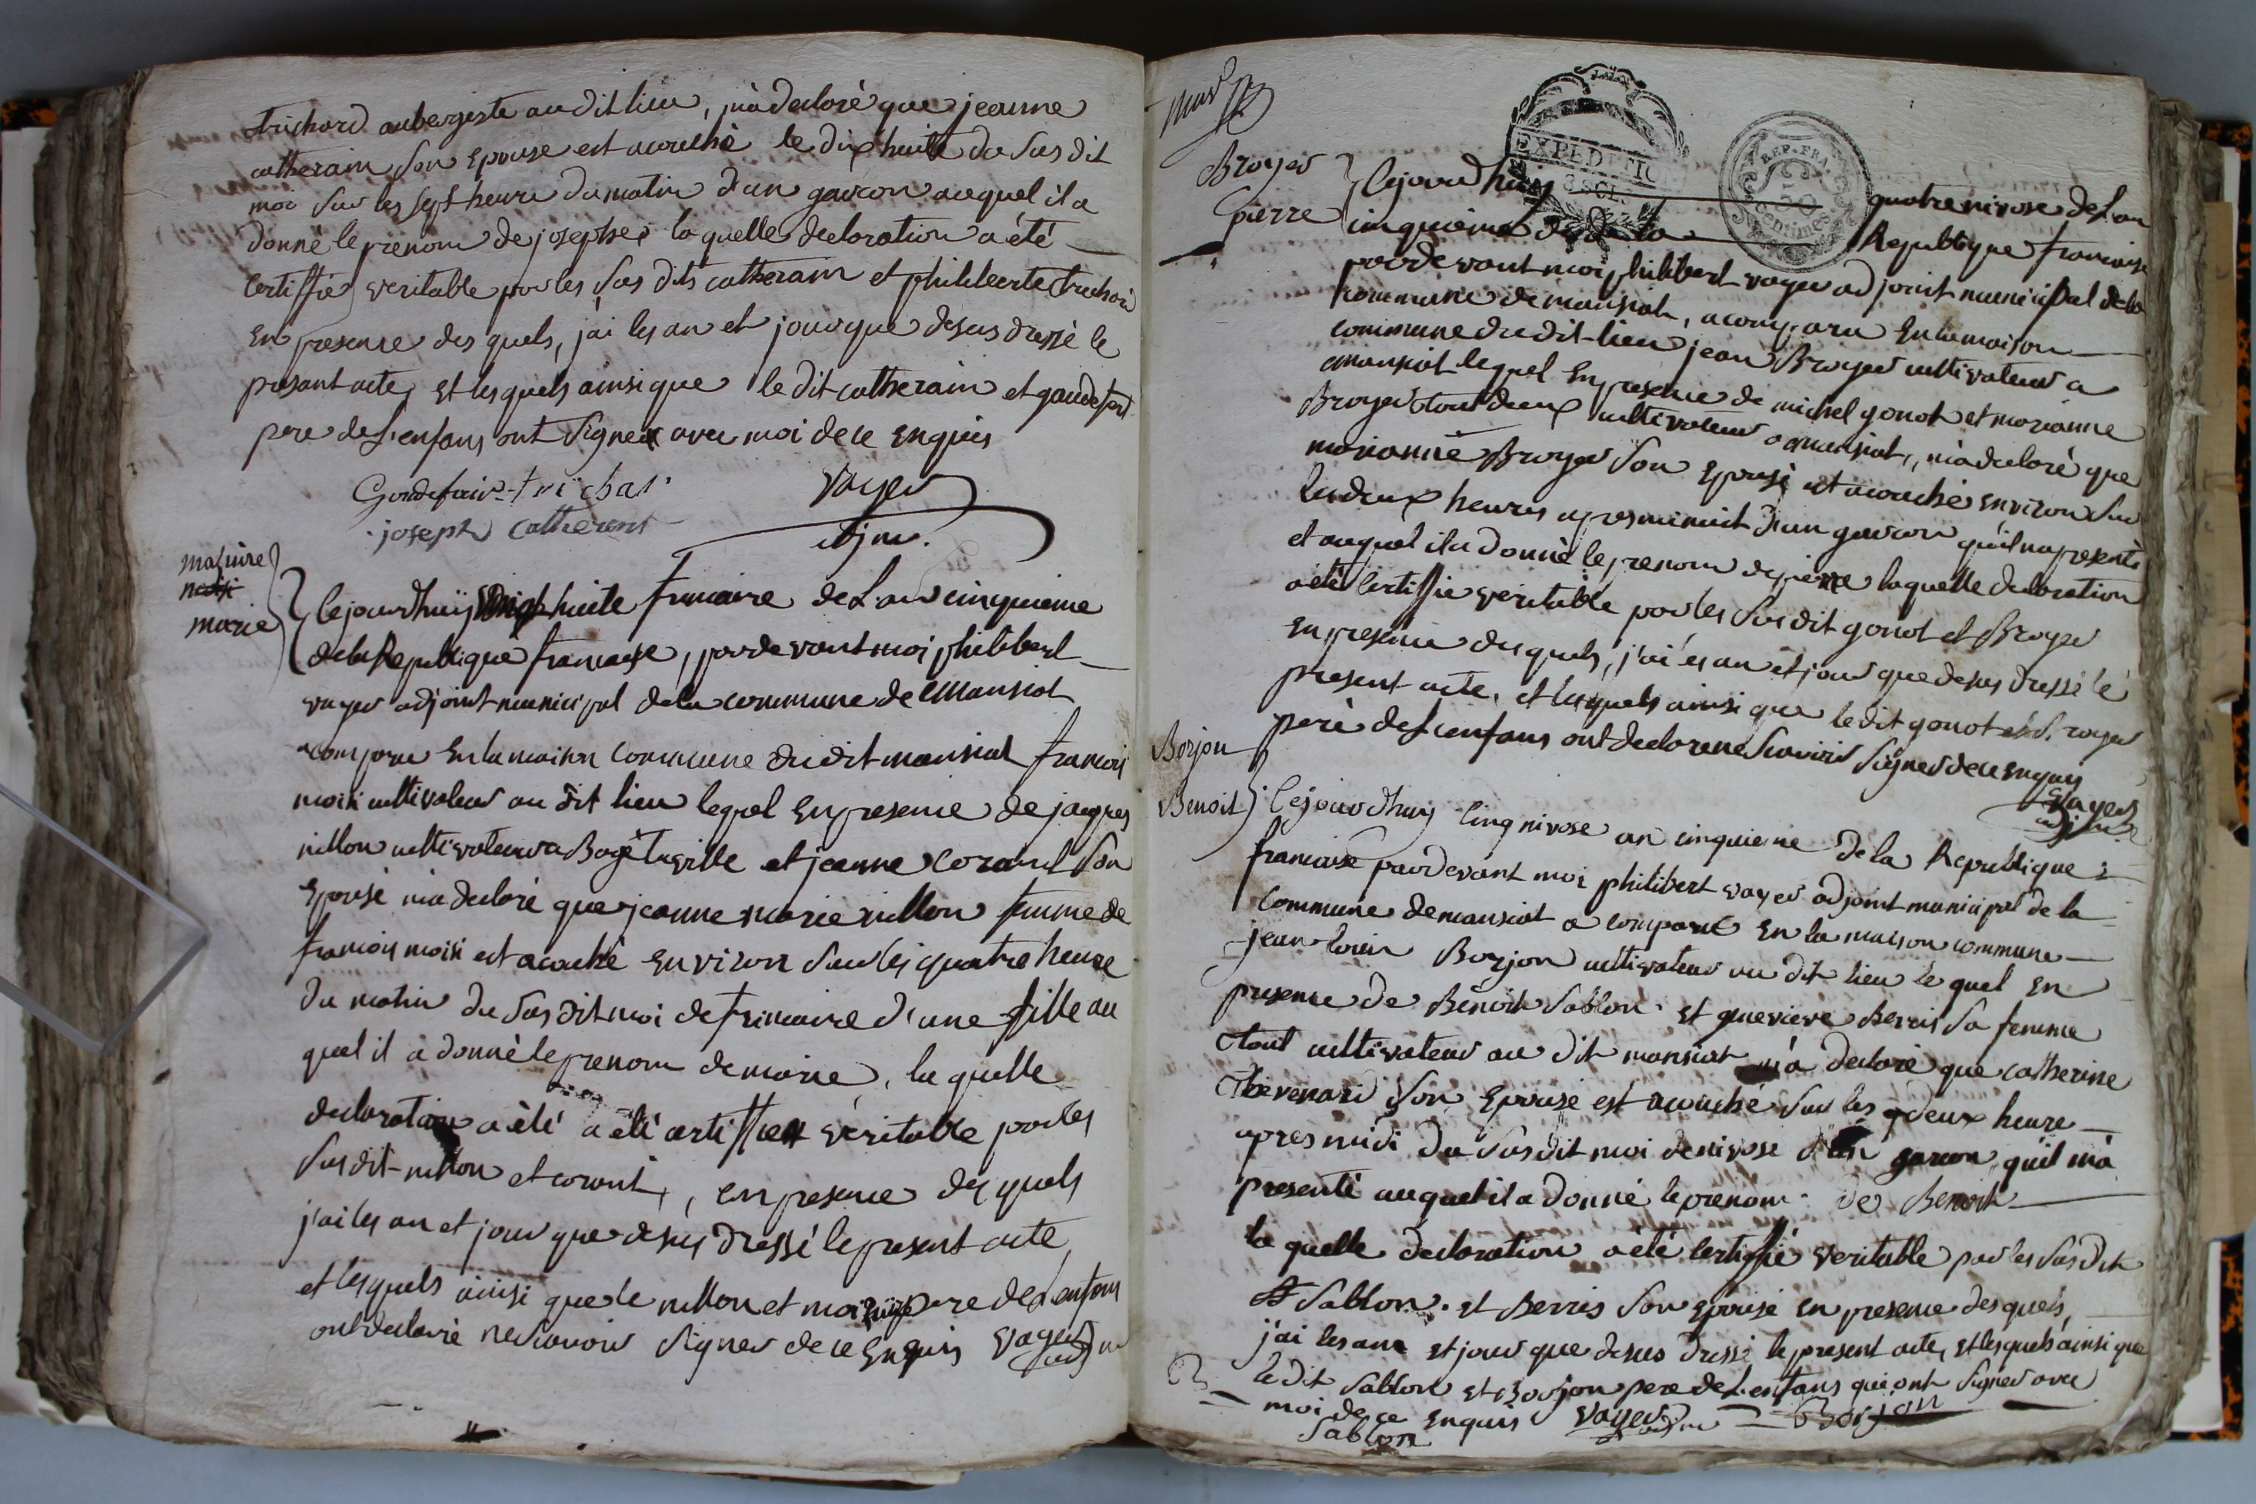 trichard aubergiste audit lieu, m'a declaré que jeanne
catherain son epouse est acouché le dix huite du sus dit
moi sur les sept heure du matin d'un garcon auquel il a
donné le prenom de josephe, la quelle declaration a été
certiffié veritable par les sus dits catherain et philiberte trichard
En presence des quels, j'ai les an et jour que desus dressé le
present acte, et lesquels ainsi que le dit catherain et gaudefert
pere de L'enfans ont signé avec moi de ce enquis
trichar voyer
joseph catherent adjm.
marie
marie
lejourdhuij dix huite frimaire de L'an cinquieme
de la Republique francaise, pardevant moi philibert
voyer adjoint municipal de la commune de Mansiat
a comparu En la maison commune du dit mansiat francois
moisi cultivateur au dit lieu lequel En presence de jacques
nillon cultivateur a Bagé la ville et jeanne corant son
Epouse m'a declaré que jeanne marie nillon femme de
francois moisi est acouché environ sur les quatre heure
du matin du sus dit moi de frimaire d'une fille au
quel il a donné le prenom de marie, la quelle
declaration a été a été certiffiée veritable par les
sus dit nillon et corant, en presence des quels
j'ai les an et jour que desus dressé le present acte
et les quels ainsi que le nillon et moisi pere de L'enfans
ont declaré ne scavoir signer de ce Enquis voyer adjm
Broyer
pierre
lejourdhuij quatre nivose de L'an
cinquieme de la Republique francaise
EXPEDITIO
REP. FRA.
50
centimes
pardevant moi philibert voyer adjoint municipal de la
commune de mansiat, a comparu En la maison
commune du dit lieu jean Broyer cultivateur a
mansiat lequel En presence de michel gonot et marianne
Broyer tout deux cultivateur a mansiat, m'a declaré que
marianne Broyer son Epouse est acouché environ sur
les deux heures apres minuit d'un garcon qu'il m'a presenté
et auquel il a donné le prenom de pierre laquelle declaration
a été certiffié veritable par les sus dit gonot et Broyer
en presence desquels, j'ai les an et jour que desus dressé le
present acte, et lesquels ainsi que le dit gonot et Broyer
pere de L'enfans ont declaré ne scavoir signer de ce enquis
voyer
adjm
Borjon
Benoit
lejourdhuy cinq nivose an cinquieme de la Republique
francaise pardevant moi philibert voyer adjoint municipal de la
commune de mansiat a comparu En la maison commune
jean louis Borjon cultivateur au dit lieu le quel En
presence de Benoit Sablon et genevieve Berris sa femme
tout cultivateur au dit mansiat m'a declaré que catherine
thevenard son Epouse est acouché sur les deux heure
apres midi du sus dit moi de nivose d'un garcon qu'il m'a
presenté auquel il a donné le prenom de Benoit
la quelle declaration a été certiffié veritable par les sus dit
Sablon et Berris son Epouse en presence des quels
j'ai les an et jour que desus dressé le present acte, et lesquels ainsi que
le dit Sablon et Borjon pere de L'enfans qui ont signer avec
moi de ce enquis voyer adjm Borjon
Sablon